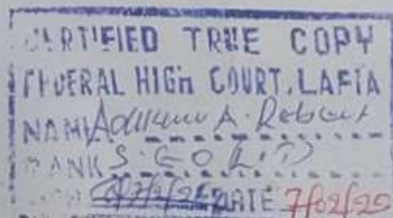 CERTIFIED TRUE COPY
FEDERAL HIGH COURT, LAFIA
NAME A. Robert
RANK S.E.O (LIT)
DATE 7/02/25